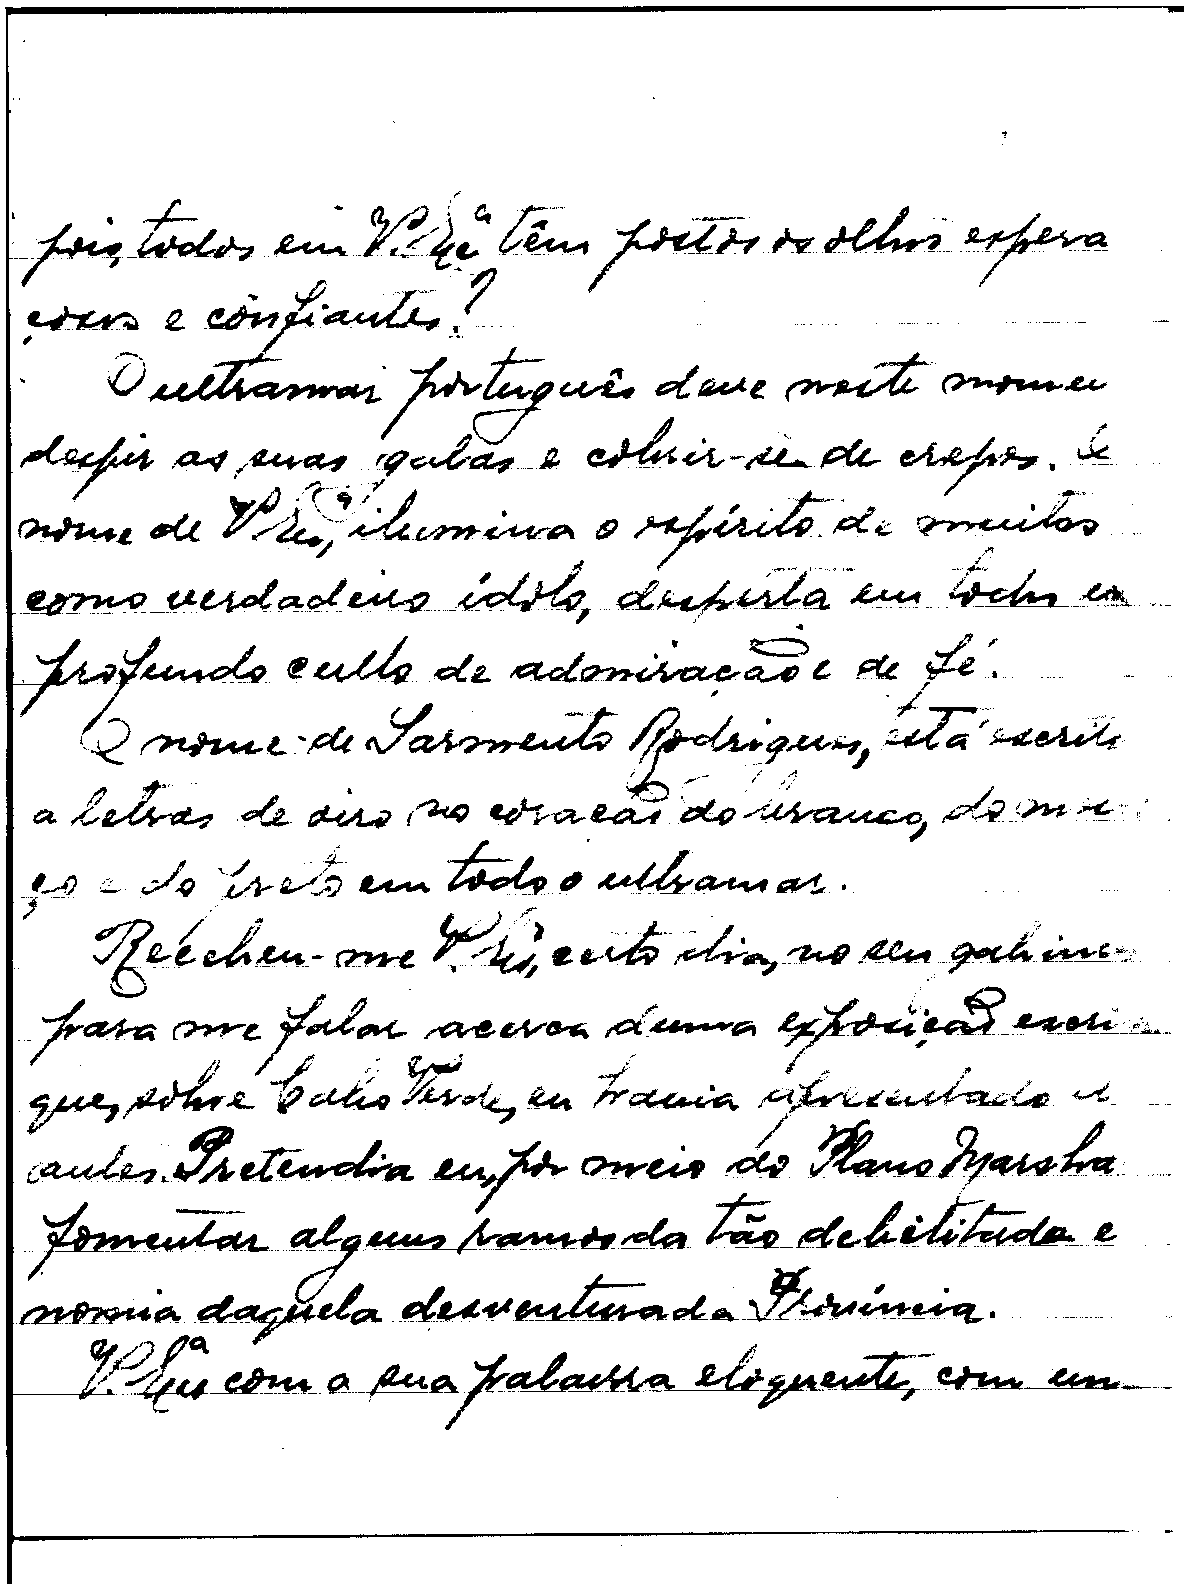 pois, todos em V. Exª têm postos os olhos espera
çosos e confiantes?
O ultramar português deve neste momen
despir as suas galas e cobrir-se de crepes.
nome de V. Exª, ilumina o espírito de muitos
como verdadeiro ídolo, desperta em todos um
profundo culto de admiração e de fé.
O nome de Sarmento Rodrigues, está escrito
a letras de oiro no coração do branco, do mes
ço e do preto em todo o ultramar.
Recebeu-me V. Exª, certo dia, no seu gabine
para me falar acerca duma exposição escri
que, sôbre Cabo Verde, eu havia apresentado
antes. Pretendia eu, por meio do Plano Marsha
fomentar alguns ramos da tão debilitada e
nomia daquela desventurada Província.
V. Exª com a sua palavra eloquente, com um